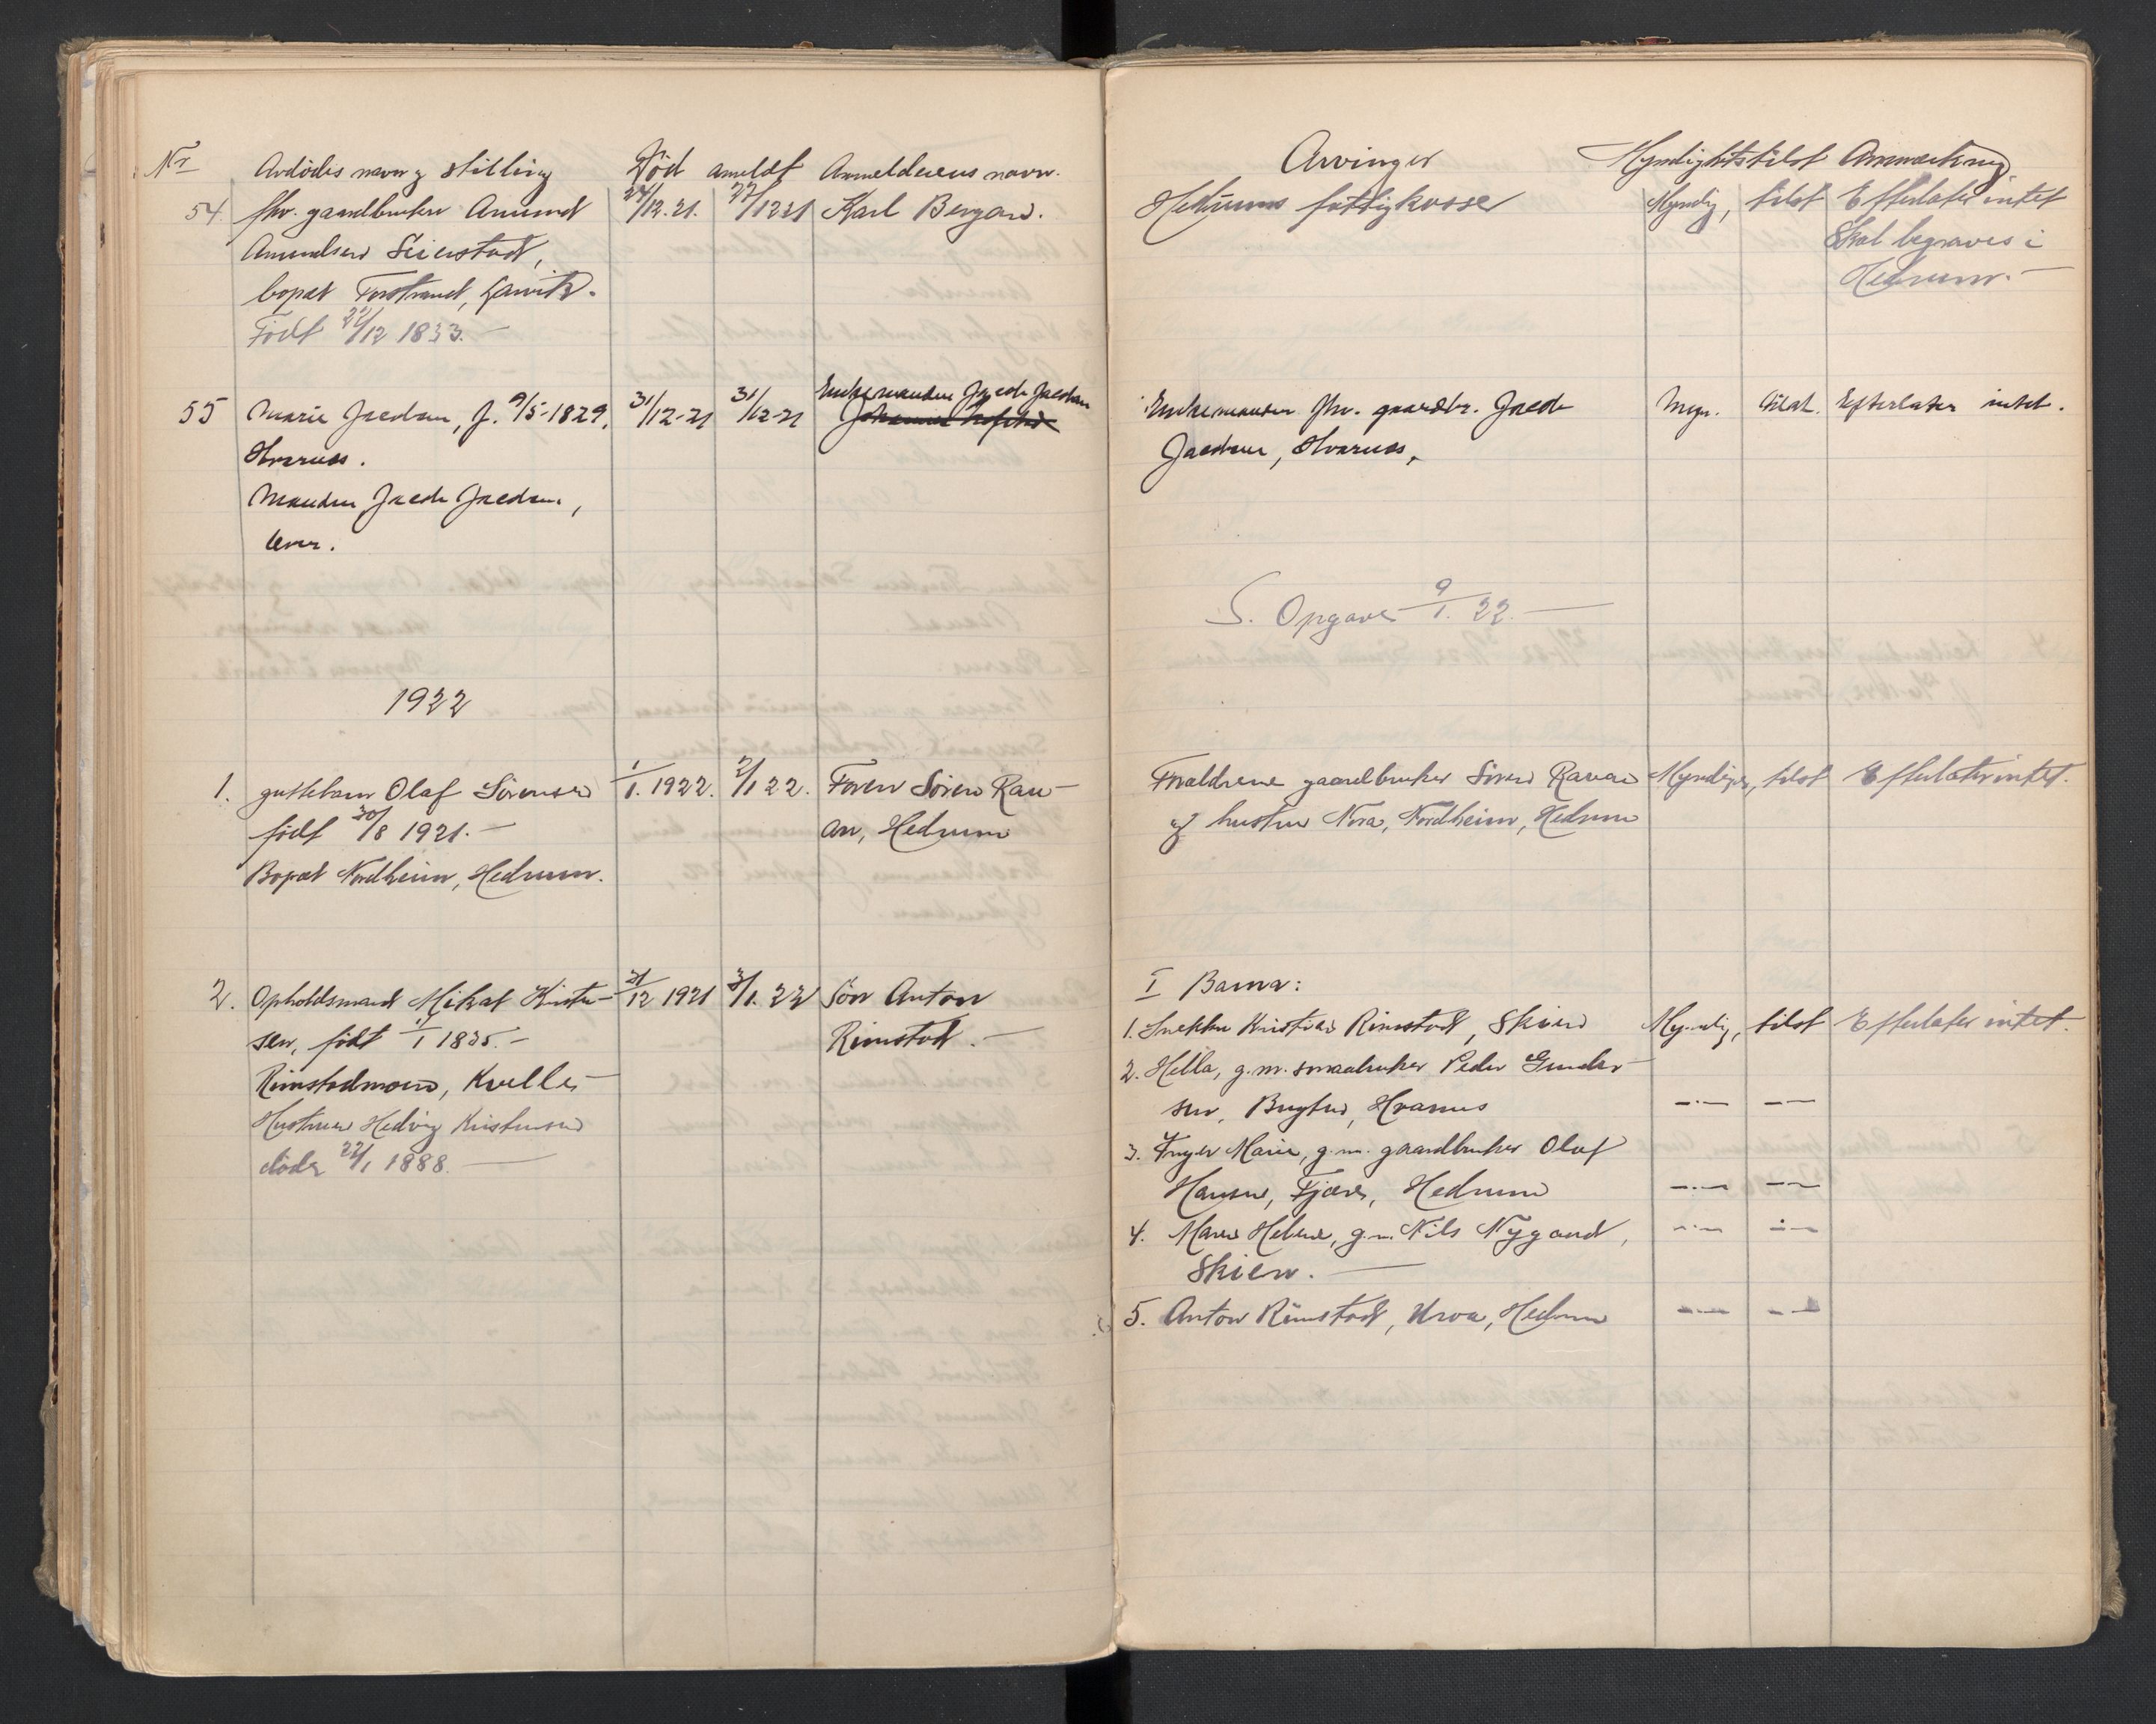 Nr Avdödes navn og stilling Död anmeldt Anmelderens navn.
54. fhv. gaardbruker Amund 24/12.21. 27/12 21 Karl Bergan.
Amundsen Seierstad,
bopæl Torstrand, Larvik.
Født 22/12 1833. —
55 Marie Jacobsen, f. 9/5-1829, 31/12-21 31/12-21 Enkemanden Jacob Jacobsen
Hvarnes.
Manden Jacob Jacobsen,
lever.
1922
1. guttebarn Olaf Sørensen 1/1. 1922. 2/1 22. Faren Søren Rau-
født 30/8 1921. — an, Hedrum
Bopæl Nordheim, Hedrum.
2. Opholdsmand Mikal Kristen- 31/12 1921 3/1. 22 Søn Anton
sen, født 1/1 1835. — Rimstad. —
Rimstadmoen, Kvelle
Hustruen Hedvig Kristensen
døde 22/1 1888. —
Arvinger Myndighetstilst Anmerkning
Hedrums fattigkasse Myndig, tilst Efterlater intet
Skal begraves i
Hedrum. —
Enkemanden fhv. gaardbr. Jacob Myn. tilst. Efterlater intet.
Jacobsen, Hvarnes,
S. Opgave 9/1. 22. —
Forældrene gaardbruker Søren Rauan Myndige, tilst Efterlater intet.
og hustru Nora, Nordheim, Hedrum
I Barna:
1. Snekker Kristian Rimstad, Skien Myndig, tilst Efterlater intet.
2. Hella, g.m. smaabruker Peder Gunder-
sen, Hvarnes —·— —·—
3. Inger Marie, g.m. gaardbruker Olaf
Hansen, Fjære, Hedrum —·— —·—
4. Maren Helene, g.m. Nils Nygaard, —·— —·—
Skien. —
5. Anton Rimstad, Hedrum —·— —·—